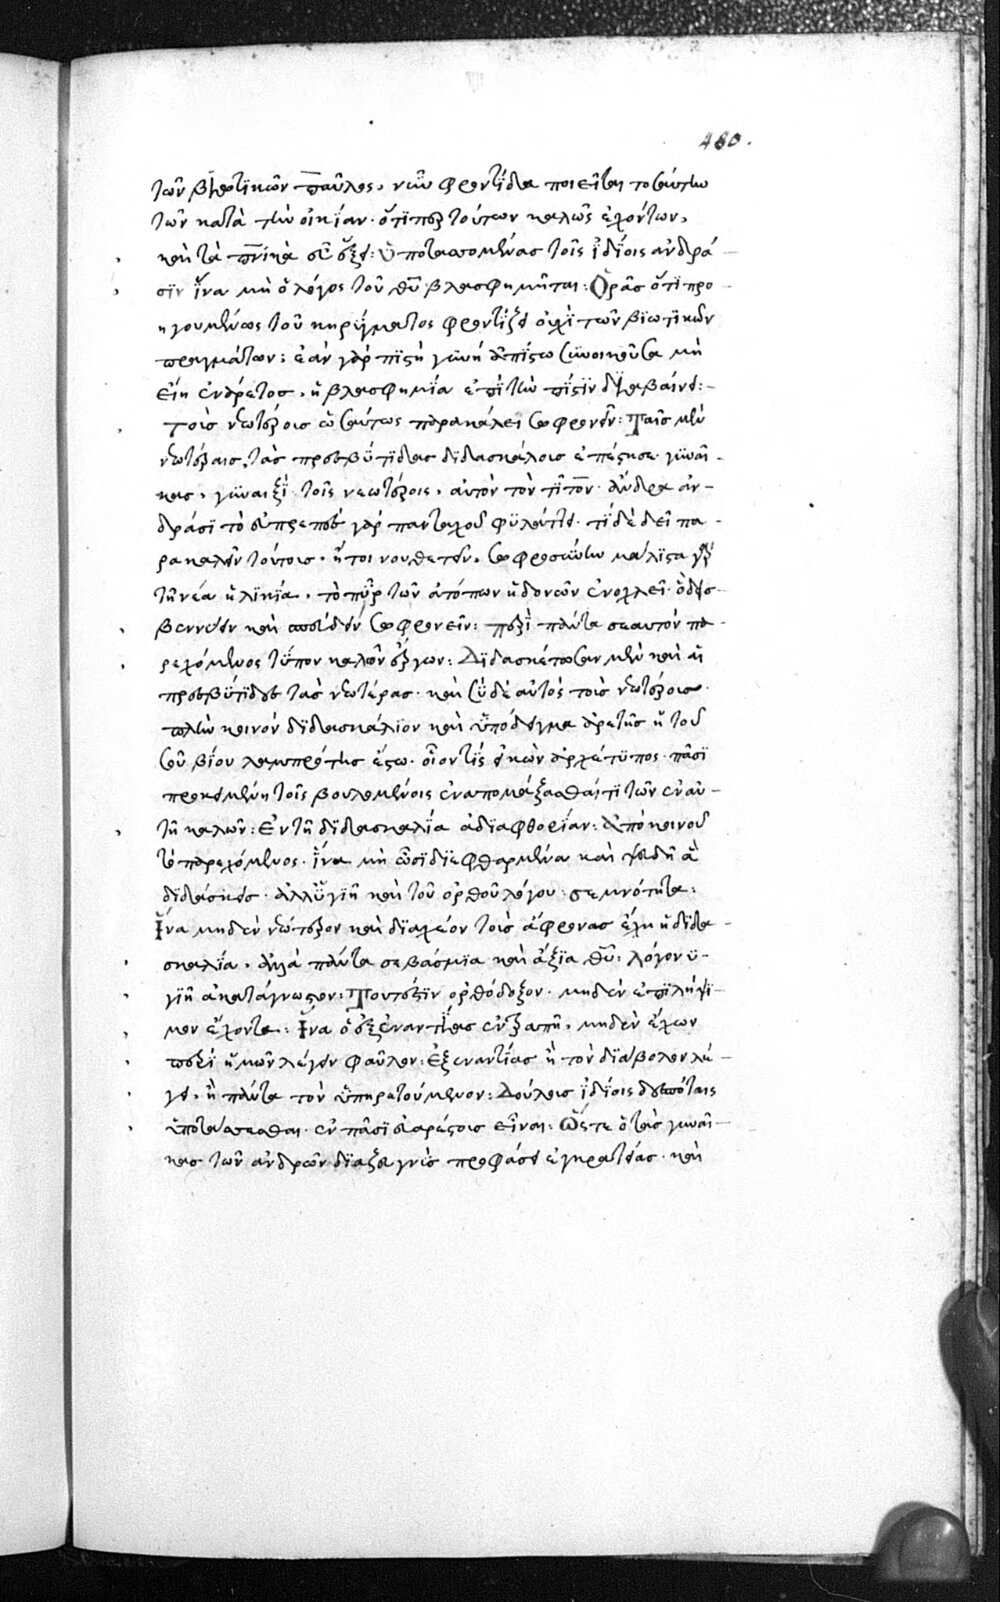 480.
τῶν βιωτικῶν παῦλος. νῦν φροντίδα ποιεῖται τοσαύτην
τῶν κατὰ τὴν οἰκίαν. ὅτι περ τούτων καλῶς ἐχόντων,
καὶ τὰ πνικὰ αὔξει: Ὑποτασσομένας τοῖς ἰδίοις ἀνδρά
σιν ἵνα μὴ ὁ λόγος τοῦ θῦ βλασφημῆται: Ὁρᾶς ὅτι προ
ηγουμένως τοῦ κηρύγματος φροντίζει οὐχὶ τῶν βιωτικῶν
πραγμάτων: ἐὰν γὰρ πιστὴ γυνὴ ἀπίστω συνοικοῦσα μὴ
εἴη ἐνάρετος. ἡ βλασφημία ἐπὶ τὴν πίστιν διαβαίνει:
Τοὺς νεωτέρους ὡσαύτως παρακάλει σωφρονεῖν: Ταῖς μὲν
νεωτέραις, τὰς πρεσβύτιδας διδασκάλους ἐπέστησε γυναῖ
κας. γυναιξὶ τοῖς νεωτέροις, αὐτὸν τὸν τίτον. ἄνδρα ἀν
δράσι τὸ εὐπρεπὲς γὰρ πανταχοῦ φυλάττει. τί δὲ δεῖ πα
ρακαλεῖν τούτοις. ἤτοι νουθετεῖν. σωφροσύνην μάλιστα γὰρ
τῆ νέα ἡλικία, τὸ πῦρ τῶν ἀτόπων ἡδονῶν ἐνοχλεῖ. ὃ δεῖ σ
βεννύειν καὶ σωφρονεῖν: περὶ πάντα σεαυτὸν πα
ρεχόμενος τύπον καλῶν ἔργων: Διδασκέτωσαν μὲν καὶ αἱ
πρεσβύτιδες τὰς νεωτέρας. καὶ σὺ δὲ αὐτὸς τοὺς νεωτέρους.
πλὴν κοινὸν διδασκάλιον καὶ ὑπόδειγμα ἀρετῆς ἡ τοῦ
σοῦ βίου λαμπρότης ἔστω. οἷον τις εἰκὼν ἀρχέτυπος. πᾶσι
προκειμένη τοῖς βουλομένοις ἐναπομάξασθαί τι τῶν ἐν αὐ
τῆ καλῶν: Ἐν τῆ διδασκαλία ἀδιαφθορίαν: Ἀπὸ κοινοῦ
τὸ παρεχόμενος. ἵνα μὴ ὦσι διεφθαρμένα καὶ ψευδῆ ἃ
διδάσκεις. ἀλλ' ὑγιῆ καὶ τοῦ ὀρθοῦ λόγου: σεμνότητα:
Ἵνα μηδὲν νεώτερον καὶ διαχέον τοὺς ἄφρονας ἔχη ἡ διδα
σκαλία. ἀλλὰ πάντα σεβάσμια καὶ ἄξια θῦ: λόγον ὑ
γιῆ ἀκατάγνωστον: Τουτέστιν ὀρθόδοξον. μηδὲν ἐπιλήψι
μον ἔχοντα: Ἵνα ὁ ἐξ ἐναντίας ἐντραπῆ. μηδὲν ἔχων
περὶ ἡμῶν λέγειν φαῦλον: Ἐξεναντίας ἢ τὸν διάβολον λέ
γει. ἢ πάντα τὸν ὑπηρετούμενον: Δούλους ἰδίοις δεσπόταις
ὑποτάσσεσθαι. ἐν πᾶσιν εὐαρέστους εἶναι: Ὥστε ὁ τὰς γυναῖ
κας τῶν ἀνδρῶν διαζευγνὺς προφάσει ἐγκρατείας. καὶ